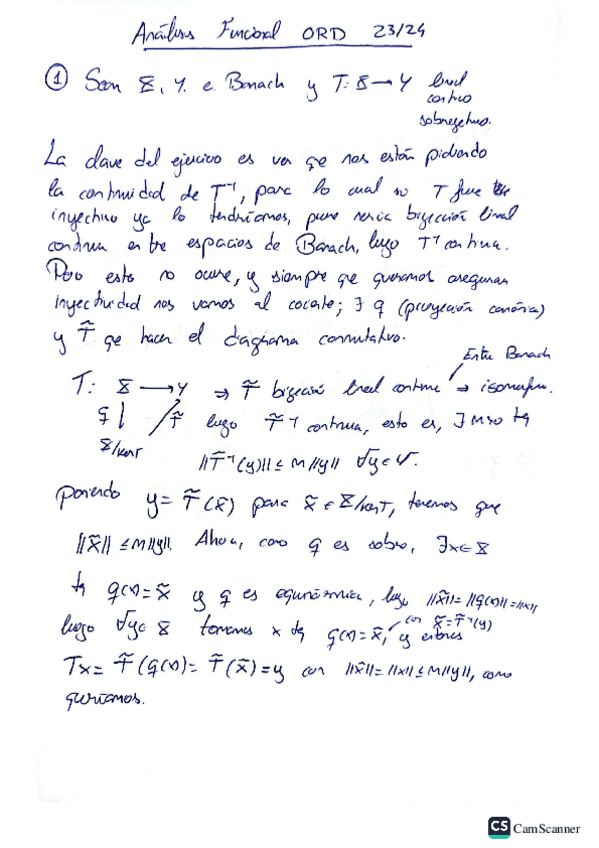 Análisis Funcional ORD 23/24
① Sean X, Y. e. Banach y T: X → Y lineal
continuo
sobreyectivo.
La clave del ejercicio es ver qe nos están pidiendo
la continuidad de T⁻¹, para lo cual si T fuese
inyectivo ya lo tendríamos, pues sería biyección lineal
continua entre espacios de Banach, luego T⁻¹ continua.
Pero esto no ocurre, y siempre que queramos asegurar
inyectividad nos vamos al cociente; ∃ q (proyección canónica)
y T̃ qe hacen el diagrama conmutativo.
Entre Banach
T: X → Y ⇒ T̃ biyección lineal continua ⇒ isomorfismo.
q ↓ ↗ T̃ luego T̃⁻¹ continua, esto es, ∃ M>0 tq
X/kerT
||T̃⁻¹(y)|| ≤ M ||y|| ∀y∈Y.
poniendo y = T̃(x̃) para x̃ ∈ X/kerT, tenemos que
||x̃|| ≤ M||y||. Ahora, como q es sobre, ∃x∈X
tq q(x)=x̃ y q es equinórmica, luego ||x̃||=||q(x)||=||x||
con x̃=T̃⁻¹(y)
luego ∀y∈ X tenemos x tq q(x)=x̃, y entonces
Tx = T̃(q(x)) = T̃(x̃) = y con ||x̃||=||x|| ≤ M||y||, como
queríamos.
CS CamScanner